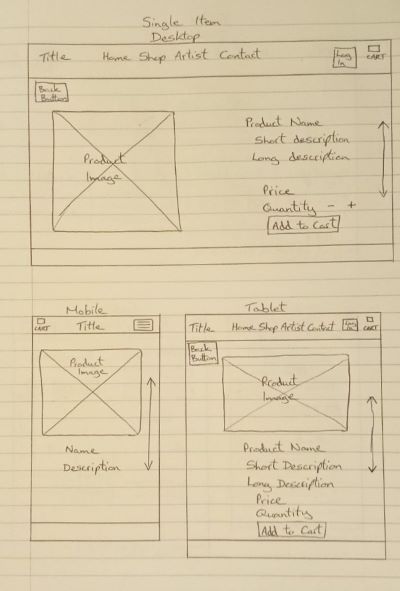 Single Item
Desktop
Title Home Shop Artist Contact Log In CART
Back Button
Product Image
Product Name
Short description
Long description
Price
Quantity - +
Add to Cart
Mobile
CART Title
Product Image
Name
Description
Tablet
Title Home Shop Artist Contact Log In CART
Back Button
Product Image
Product Name
Short Description
Long Description
Price
Quantity
Add to Cart